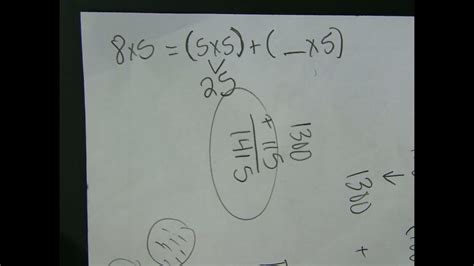 8x5 = (5x5) + ( _ x5)
25
1300
+ 115
1415
1300
+